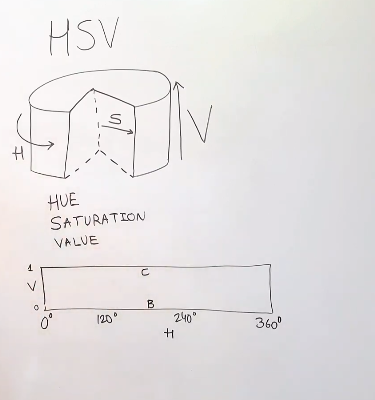 HSV
S
V
H
HUE
SATURATION
VALUE
1
C
V
0
B
0° 120° 240° 360°
H